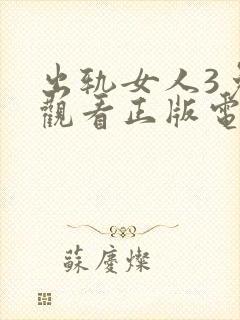 出轨女人3
觀看正版電
蘇慶燦